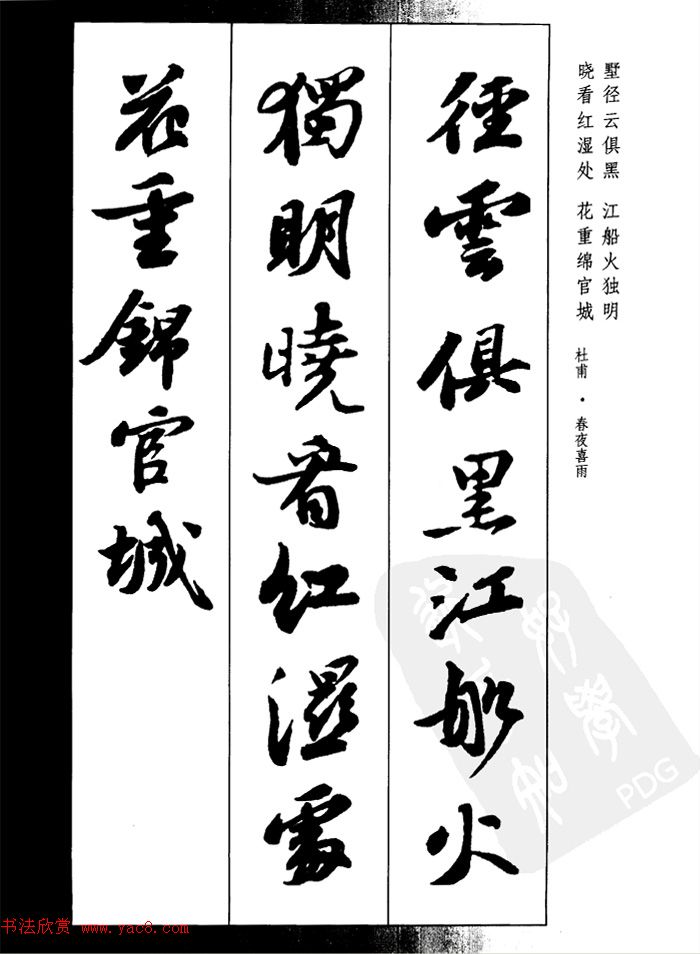 墅径云俱黑 江船火独明
晓看红湿处 花重绵官城
杜甫·春夜喜雨
徑雲俱黑江船火
獨明曉看紅濕處
花重錦官城
PDG
书法欣赏 www.yac8.com